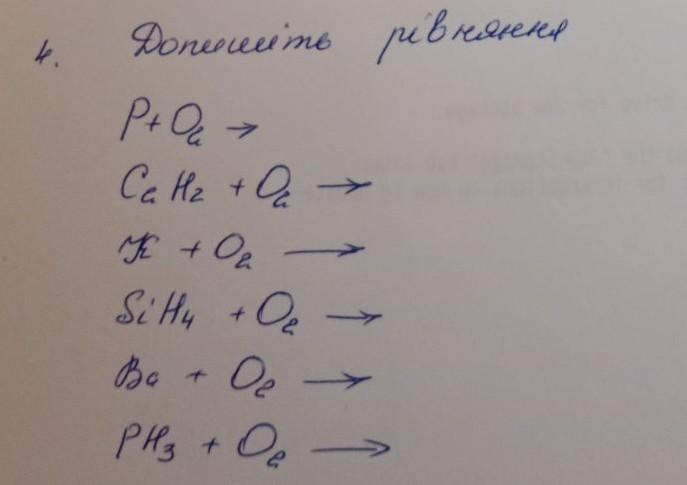 4. Допишіть рівняння
P + O₂ →
CaH₂ + O₂ →
K + O₂ →
SiH₄ + O₂ →
Ba + O₂ →
PH₃ + O₂ →